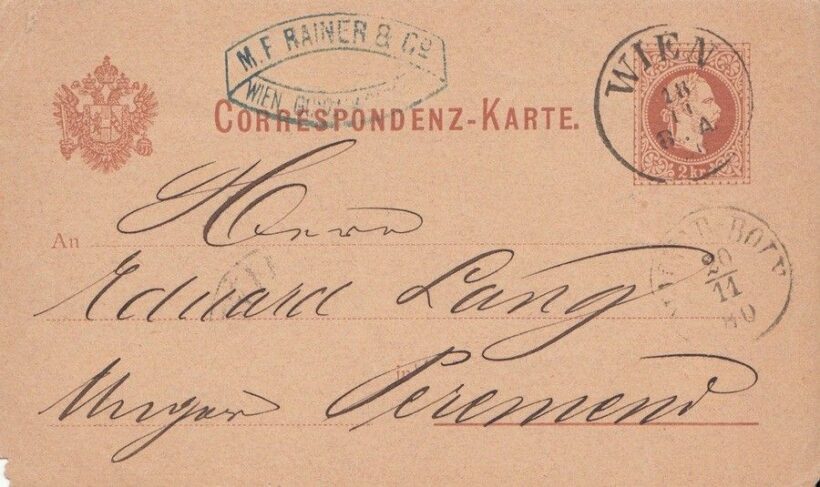 M. F. RAINER & Co
WIEN,
CORRESPONDENZ-KARTE.
WIEN
18
11
2 kr.
An
Herrn
Eduard Lang
Ungarn Peremend
20
11
80